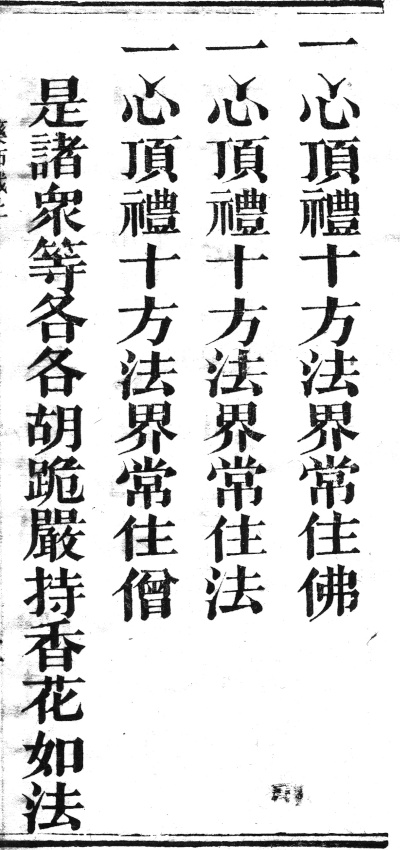 一心頂禮十方法界常住佛
一心頂禮十方法界常住法
一心頂禮十方法界常住僧
是諸衆等各各胡跪嚴持香花如法